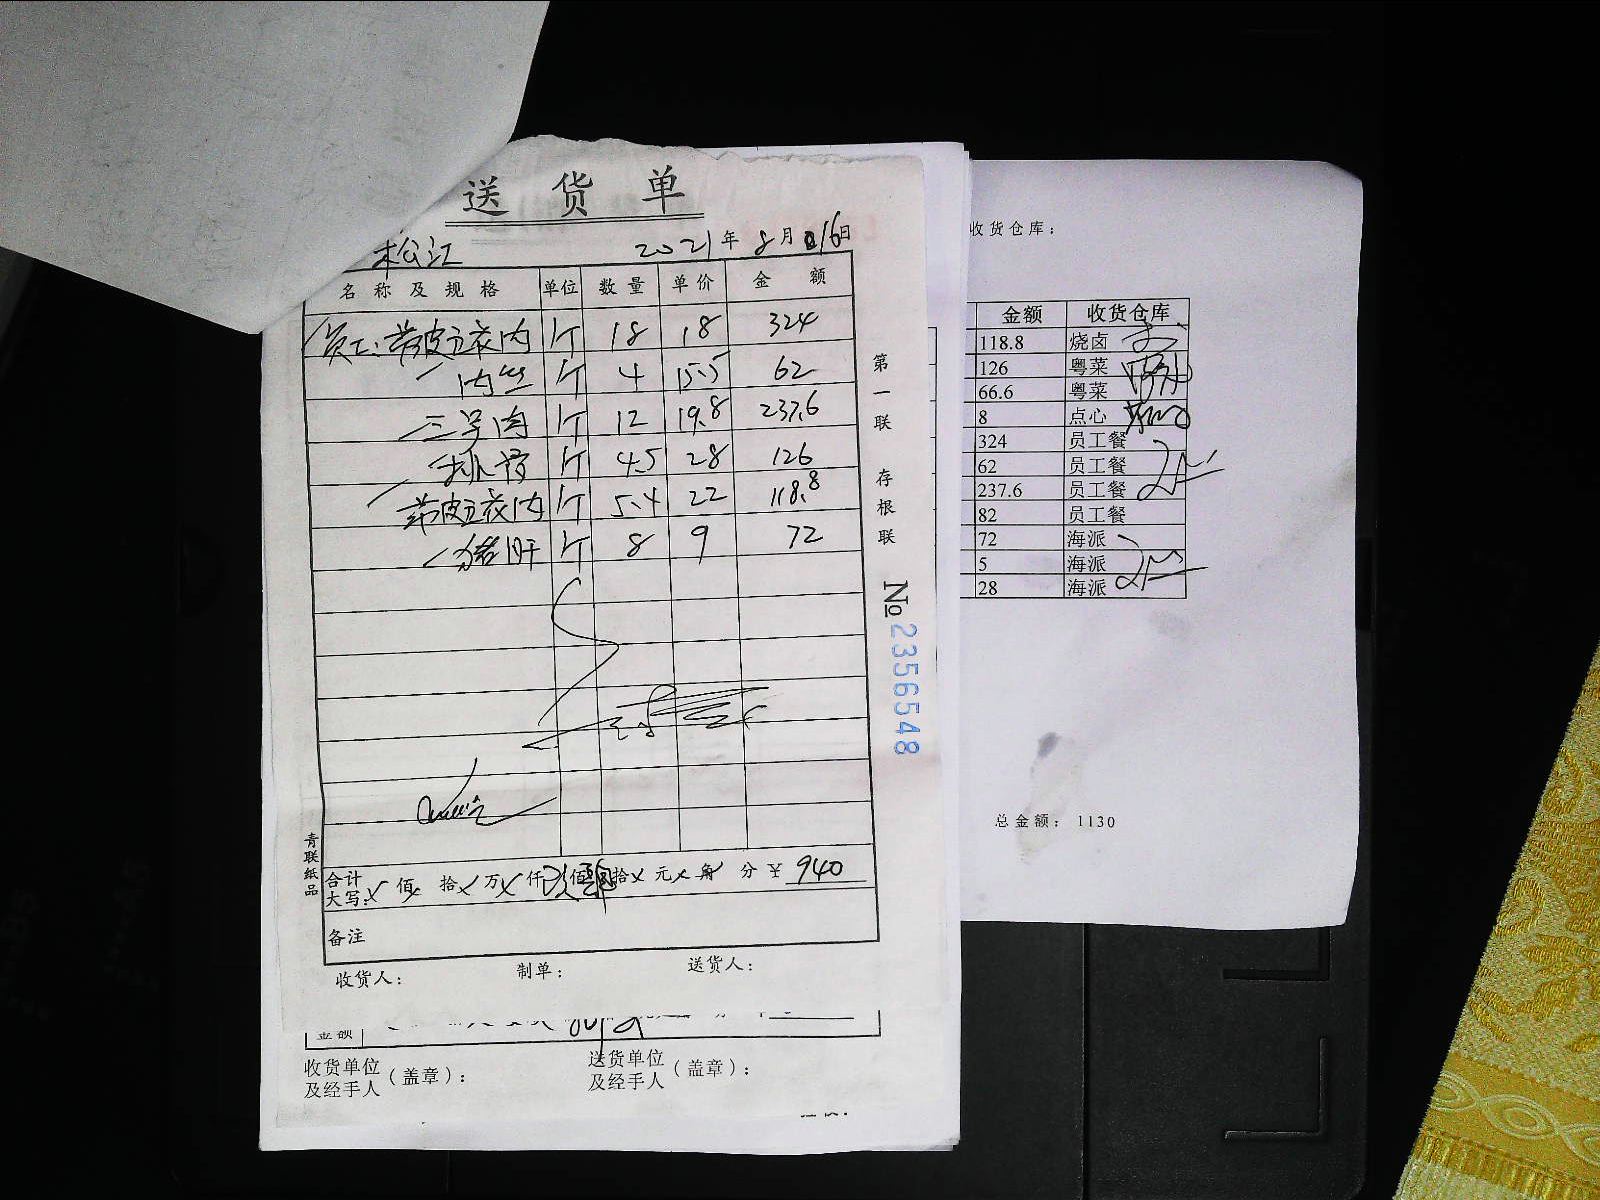 送货单
松江 2021年8月16日
名称及规格 单位 数量 单价 金额
员工:带皮五花肉 斤 18 18 324
肉丝 斤 4 15.5 62
三号肉 斤 12 19.8 237.6
排骨 斤 4.5 28 126
带皮五花肉 斤 5.4 22 118.8
猪肝 斤 8 9 72
第一联 存根联
№2356548
青联纸品
合计大写: 佰 拾 万 仟 佰 拾 元 角 分 ¥940
备注
收货人: 制单: 送货人:
金额
收货单位及经手人(盖章): 送货单位及经手人(盖章):
收货仓库:
金额 收货仓库
118.8 烧卤
126 粤菜
66.6 粤菜
8 点心
324 员工餐
62 员工餐
237.6 员工餐
82 员工餐
72 海派
5 海派
28 海派
总金额: 1130